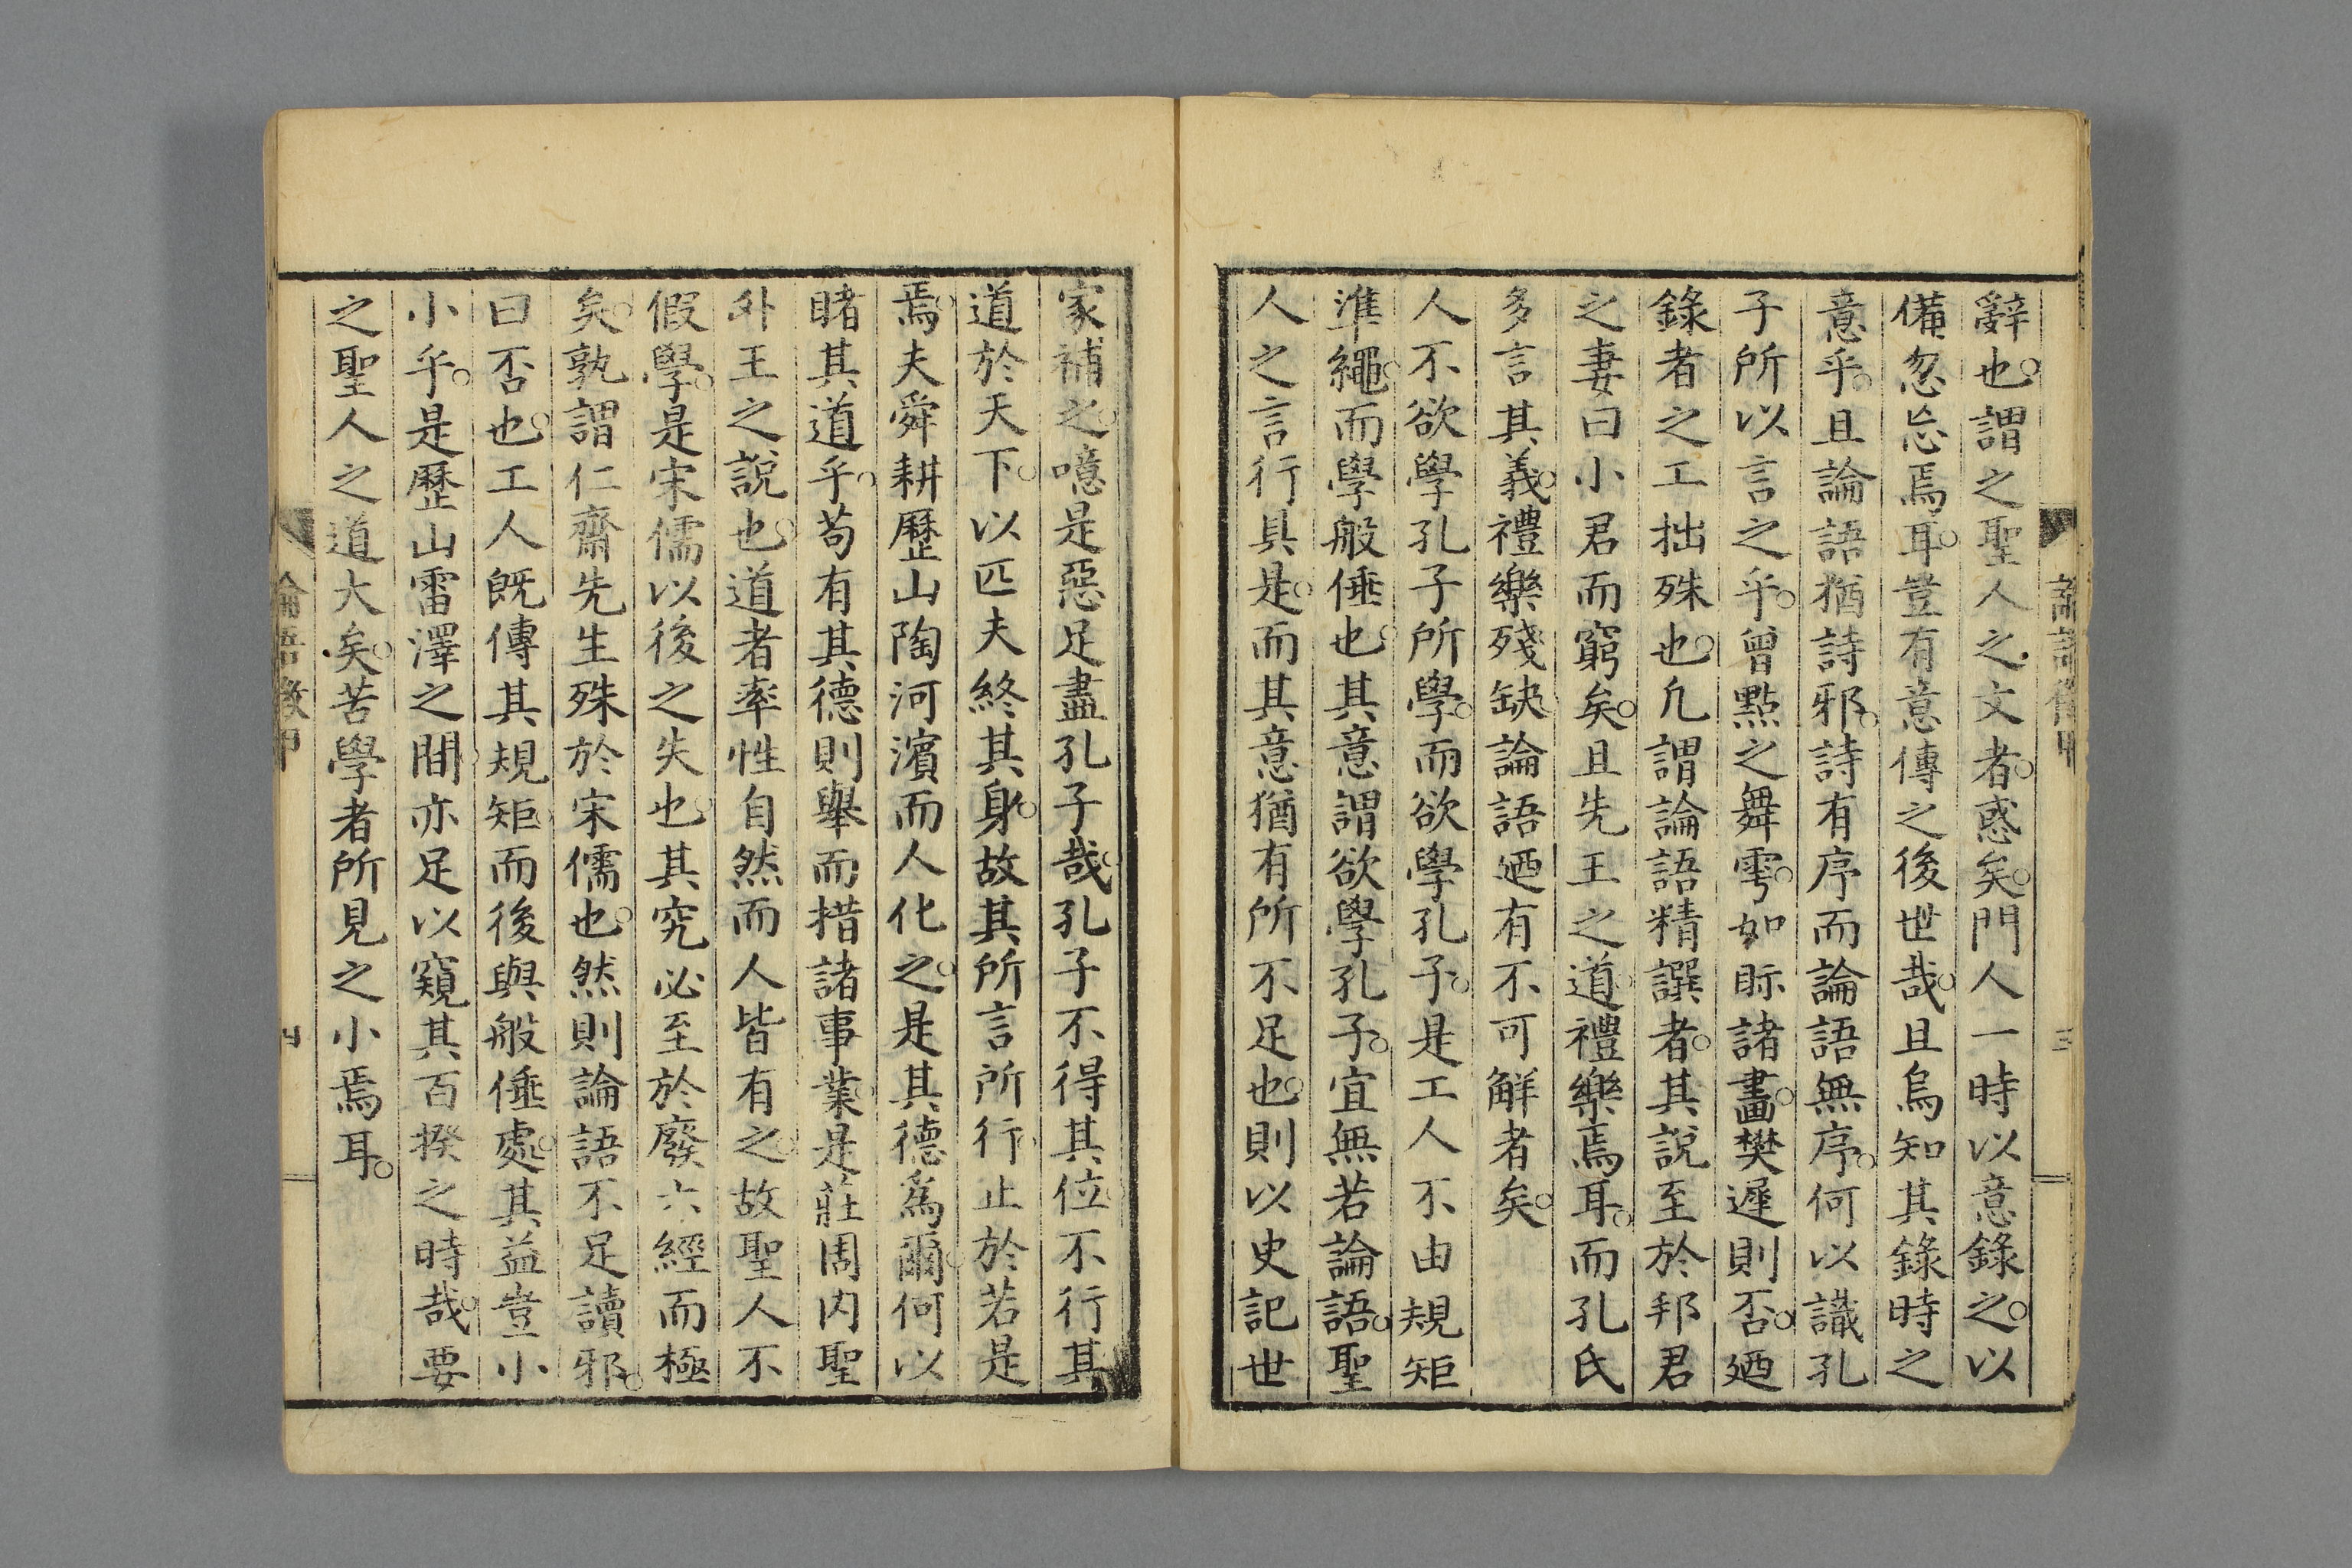 論語徵甲
三
辭也。謂之聖人之文者。惑矣。門人一時以意錄之。以
備忽忘焉耳。豈有意傳之後世哉。且烏知其錄時之
意乎。且論語猶詩邪。詩有序而論語無序。何以識孔
子所以言之乎。曾點之舞雩。如眎諸畫。樊遲則否。廼
錄者之工拙殊也。凢謂論語精譔者。其說至於邦君
之妻曰小君而窮矣。且先王之道。禮樂焉耳。而孔氏
多言其義。禮樂殘缺。論語廼有不可解者矣。
人不欲學孔子所學。而欲學孔子。是工人不由規矩
準繩。而學般倕也。其意謂欲學孔子。宜無若論語。聖
人之言行具是。而其意猶有所不足也。則以史記世
家補之。噫是惡足盡孔子哉。孔子不得其位。不行其
道於天下。以匹夫終其身。故其所言所行。止於若是
焉。夫舜耕歷山陶河濱而人化之。是其德爲爾。何以
睹其道乎。苟有其德則舉而措諸事業。是莊周内聖
外王之說也。道者率性自然而人皆有之。故聖人不
假學。是宋儒以後之失也。其究必至於廢六經而極
矣。孰謂仁齋先生殊於宋儒也。然則論語不足讀邪。
曰否也。工人既傳其規矩。而後與般倕處。其益豈小
小乎。是歷山雷澤之間。亦足以窺其百揆之時哉。要
之聖人之道大矣。苦學者所見之小焉耳。
論語徵甲
四